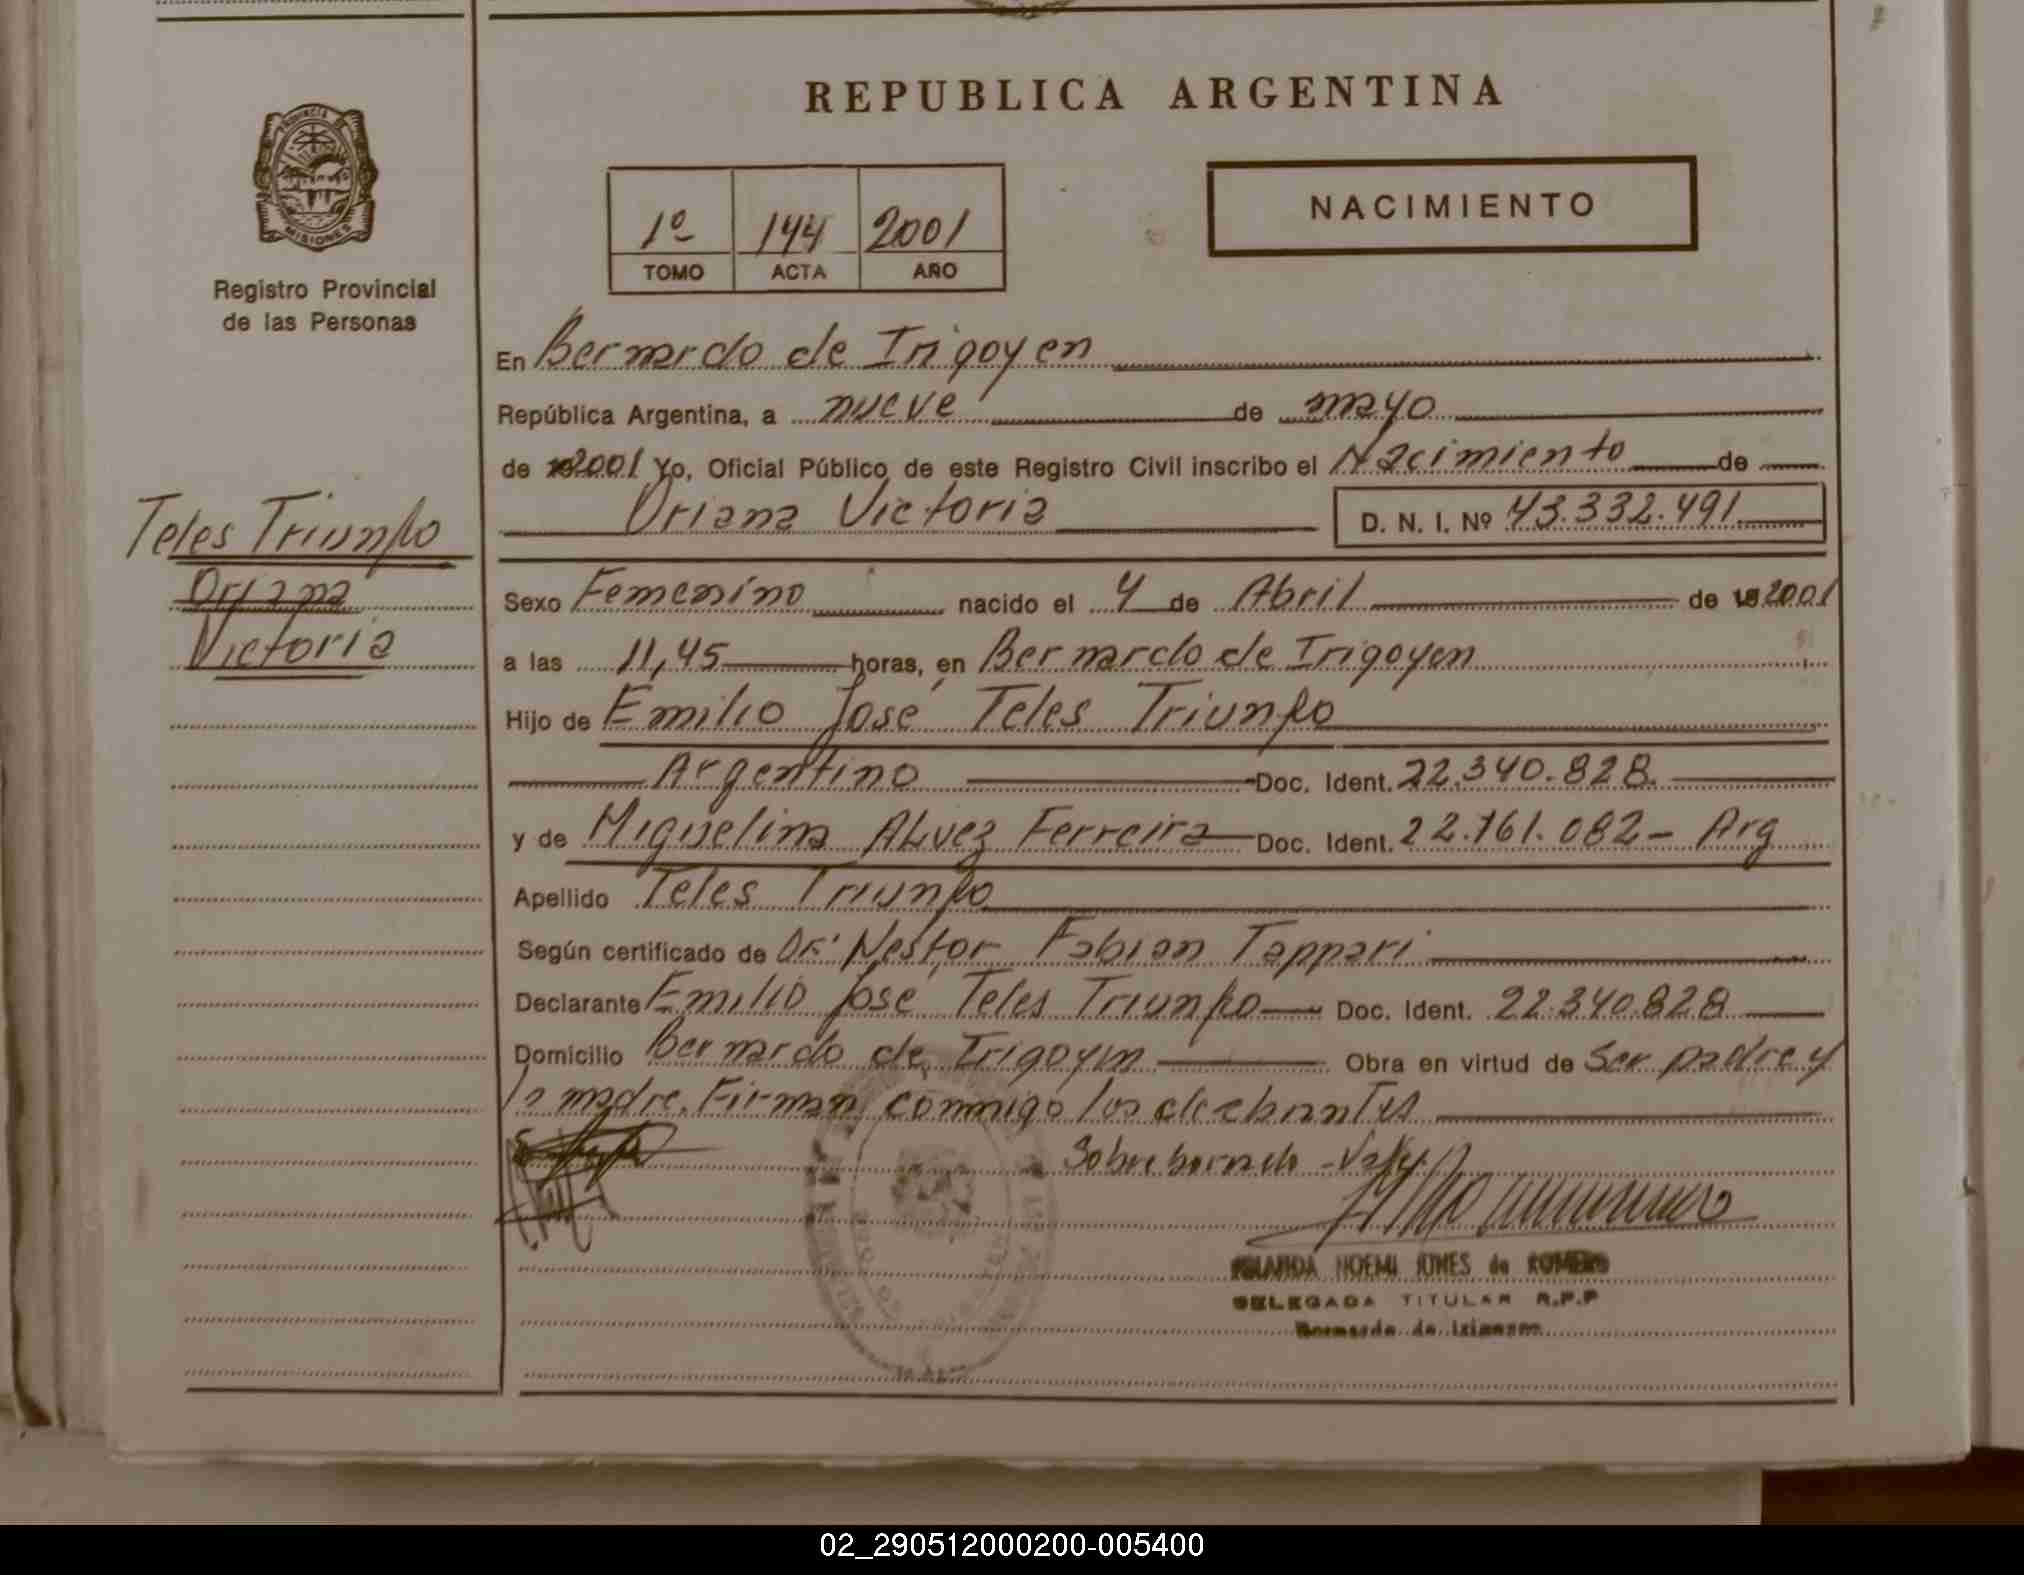 REPUBLICA ARGENTINA
PROVINCIA DE
MISIONES
Registro Provincial
de las Personas
1º 144 2001
TOMO ACTA AÑO
NACIMIENTO
En Bernardo de Irigoyen
República Argentina, a nueve de mayo
de 2001 Yo, Oficial Público de este Registro Civil inscribo el Nacimiento de
Oriana Victoria D. N. I. Nº 43.332.491
Teles Triunfo
Oriana
Victoria
Sexo Femenino nacido el 4 de Abril de 2001
a las 11,45 horas, en Bernardo de Irigoyen
Hijo de Emilio José Teles Triunfo
Argentino Doc. Ident. 22.340.828
y de Miguelina Alvez Ferreira Doc. Ident. 22.761.082 - Arg
Apellido Teles Triunfo
Según certificado de Dr. Nestor Fabian Tappari
Declarante Emilio José Teles Triunfo Doc. Ident. 22.340.828
Domicilio Bernardo de Irigoyen Obra en virtud de Ser padre y
la madre. Firman conmigo los
Sobreborrado - Vale
NOEMI JONES de ROMERO
DELEGADA TITULAR R.P.P
Bernardo de Irigoyen
02_290512000200-005400